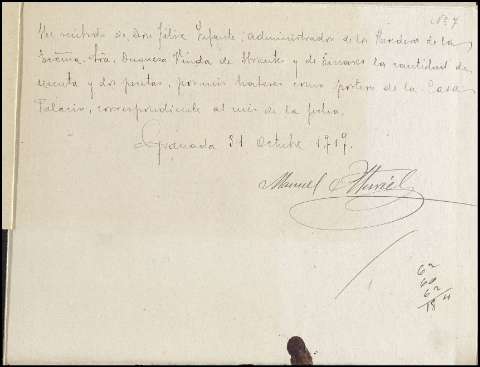 Nº 7
He recibido de Don Felix Infante, administrador de la de la
Excma. Sra. Duquesa Viuda de Abrantes y de Linares la cantidad de
sesenta y dos pesetas, por mis haberes como portero de la Casa
Palacio, correspondiente al mes de la fecha.
Granada 31 Octubre 1919.
Manuel
62